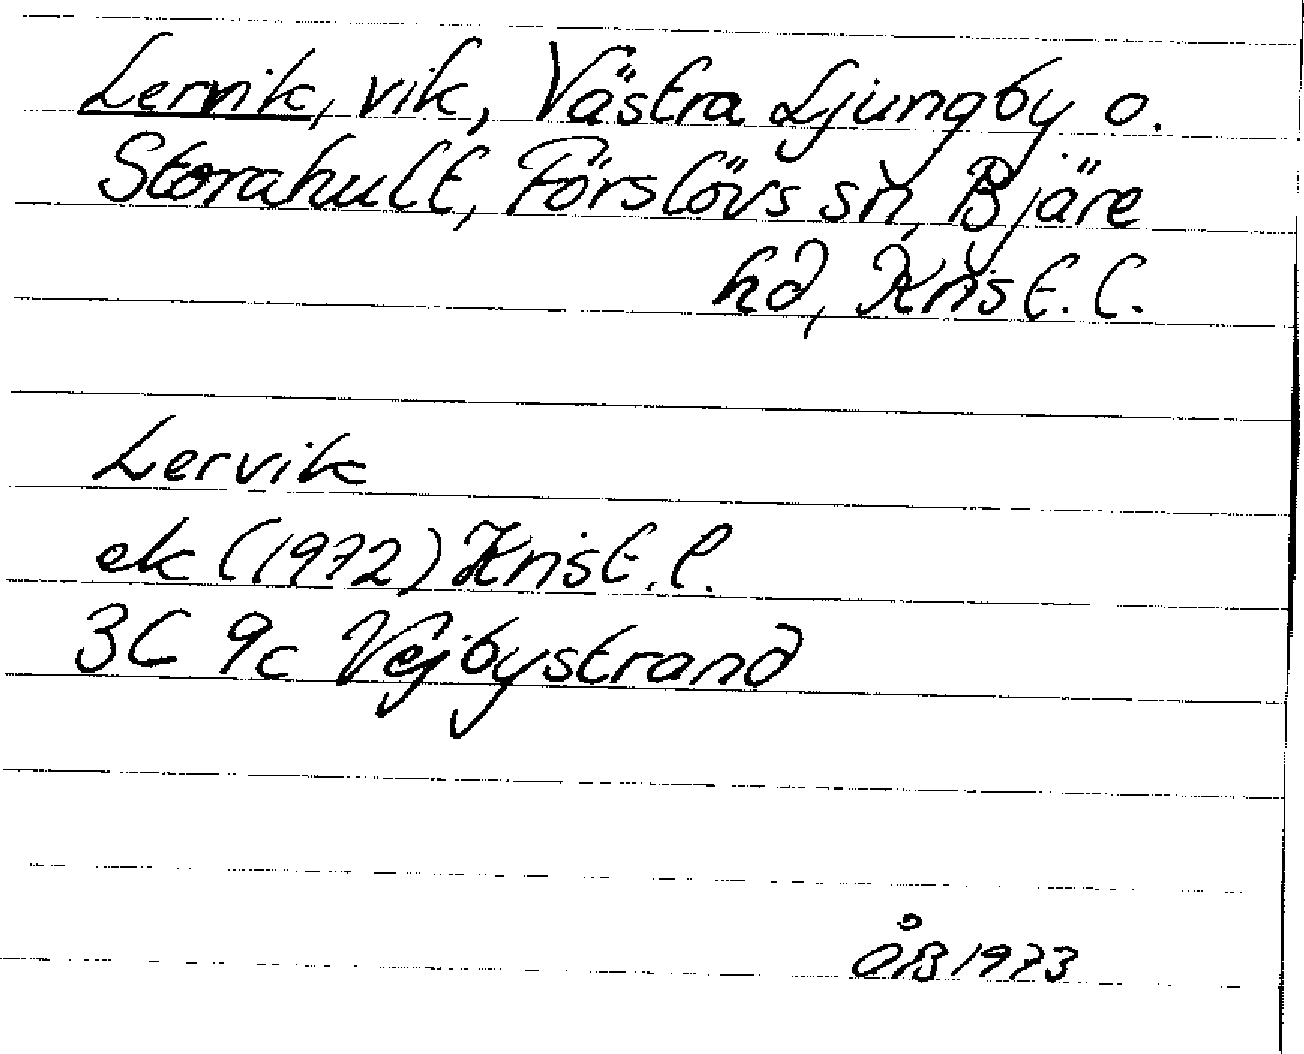 Lervik, vik, Västra Ljungby o.
Storahult, Förslövs sn, Bjäre
hd, Krist. l.
Lervik
ek (1972) Krist. l.
3C 9c Vejbystrand
ÅB 1973